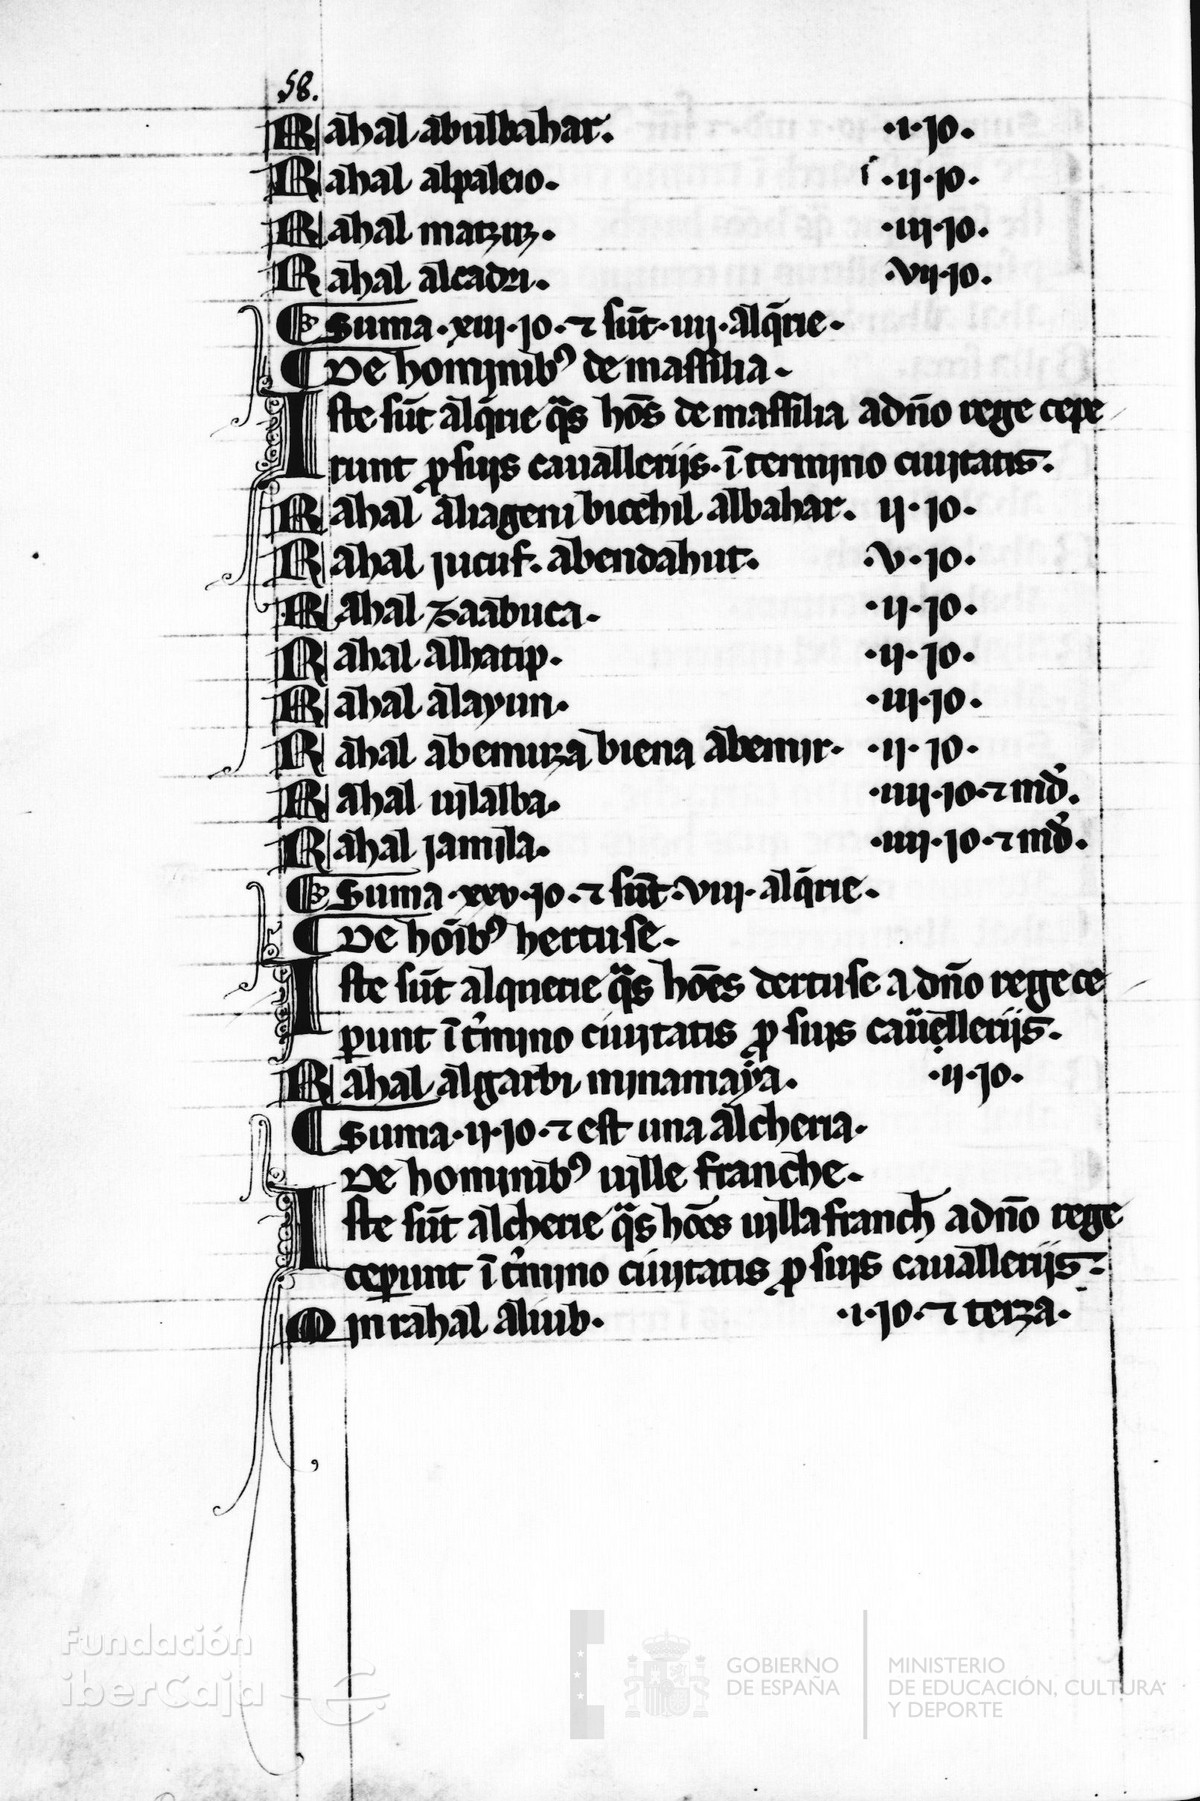 58.
Rahal abulbahar. ·i·io·
Rahal alpaleio. i ·ij·io·
Rahal matziz. ·iii·io·
Rahal alcadri. ·vij·io·
Suma·xiii·io·⁊ sūt·iiij·alq̄rie·
De hominibꝰ de massilia·
Iste sūt alq̄rie q̄s hōs de massilia adño rege cepe
runt ꝓ suis cauallerijs·ī termino ciuitatis·
Rahal aliageni bicehil albahar. ij·io·
Rahal jucuf. abendahut. ·v·io·
Rahal zaabuca· ·ij·io·
Rahal alhatip. ·ij·io·
Rahal alayun· ·iii·io·
Rahal abemuza biena abemir· ·ij·io·
Rahal uilalba· ·iiij·io·⁊ md̄.
Rahal jamila· ·iiij·io·⁊ md̄.
Suma·xxv·io·⁊ sūt·viii·alq̄rie·
De hoībꝰ hertuse·
Iste sūt alquerie q̄s hōes dertuse a dño rege ce
perunt ī t̄mino ciuitatis ꝓ suis cauellerijs·
Rahal algarbi minamaya· ·ij·io·
Suma·ij·io·⁊ est una alcheria·
De hominibꝰ uille franche·
Iste sūt alcherie q̄s hōes uillafranch̄ adño rege
ceperunt ī t̄mino ciuitatis ꝓ suis cauallerijs·
In rahal aliub· ·i·io·⁊ terza·
Fundación
iberCaja
GOBIERNO
DE ESPAÑA
MINISTERIO
DE EDUCACIÓN, CULTURA
Y DEPORTE